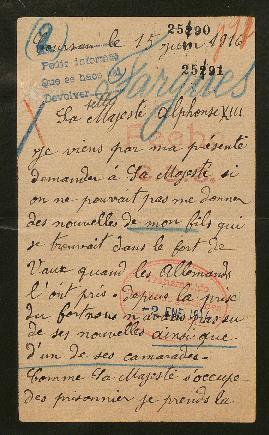 25290
Coursan le 15 juin 1916
25291
Pedir informes
Que se haga
Devolver
Fargues
Sa Majesté Alphonse XIII
Je viens par ma présente
demander à Sa Majesté si
on ne pouvait pas me donner
des nouvelles de mon fils qui
se trouvait dans le fort de
Vaux quand les Allemands
l'ont pris depuis la prise
du fort nous n'avons pas su
de ses nouvelles ainsi que
d'un de ses camarades.
Comme Sa Majesté s'occupe
des prisonnier je prends la